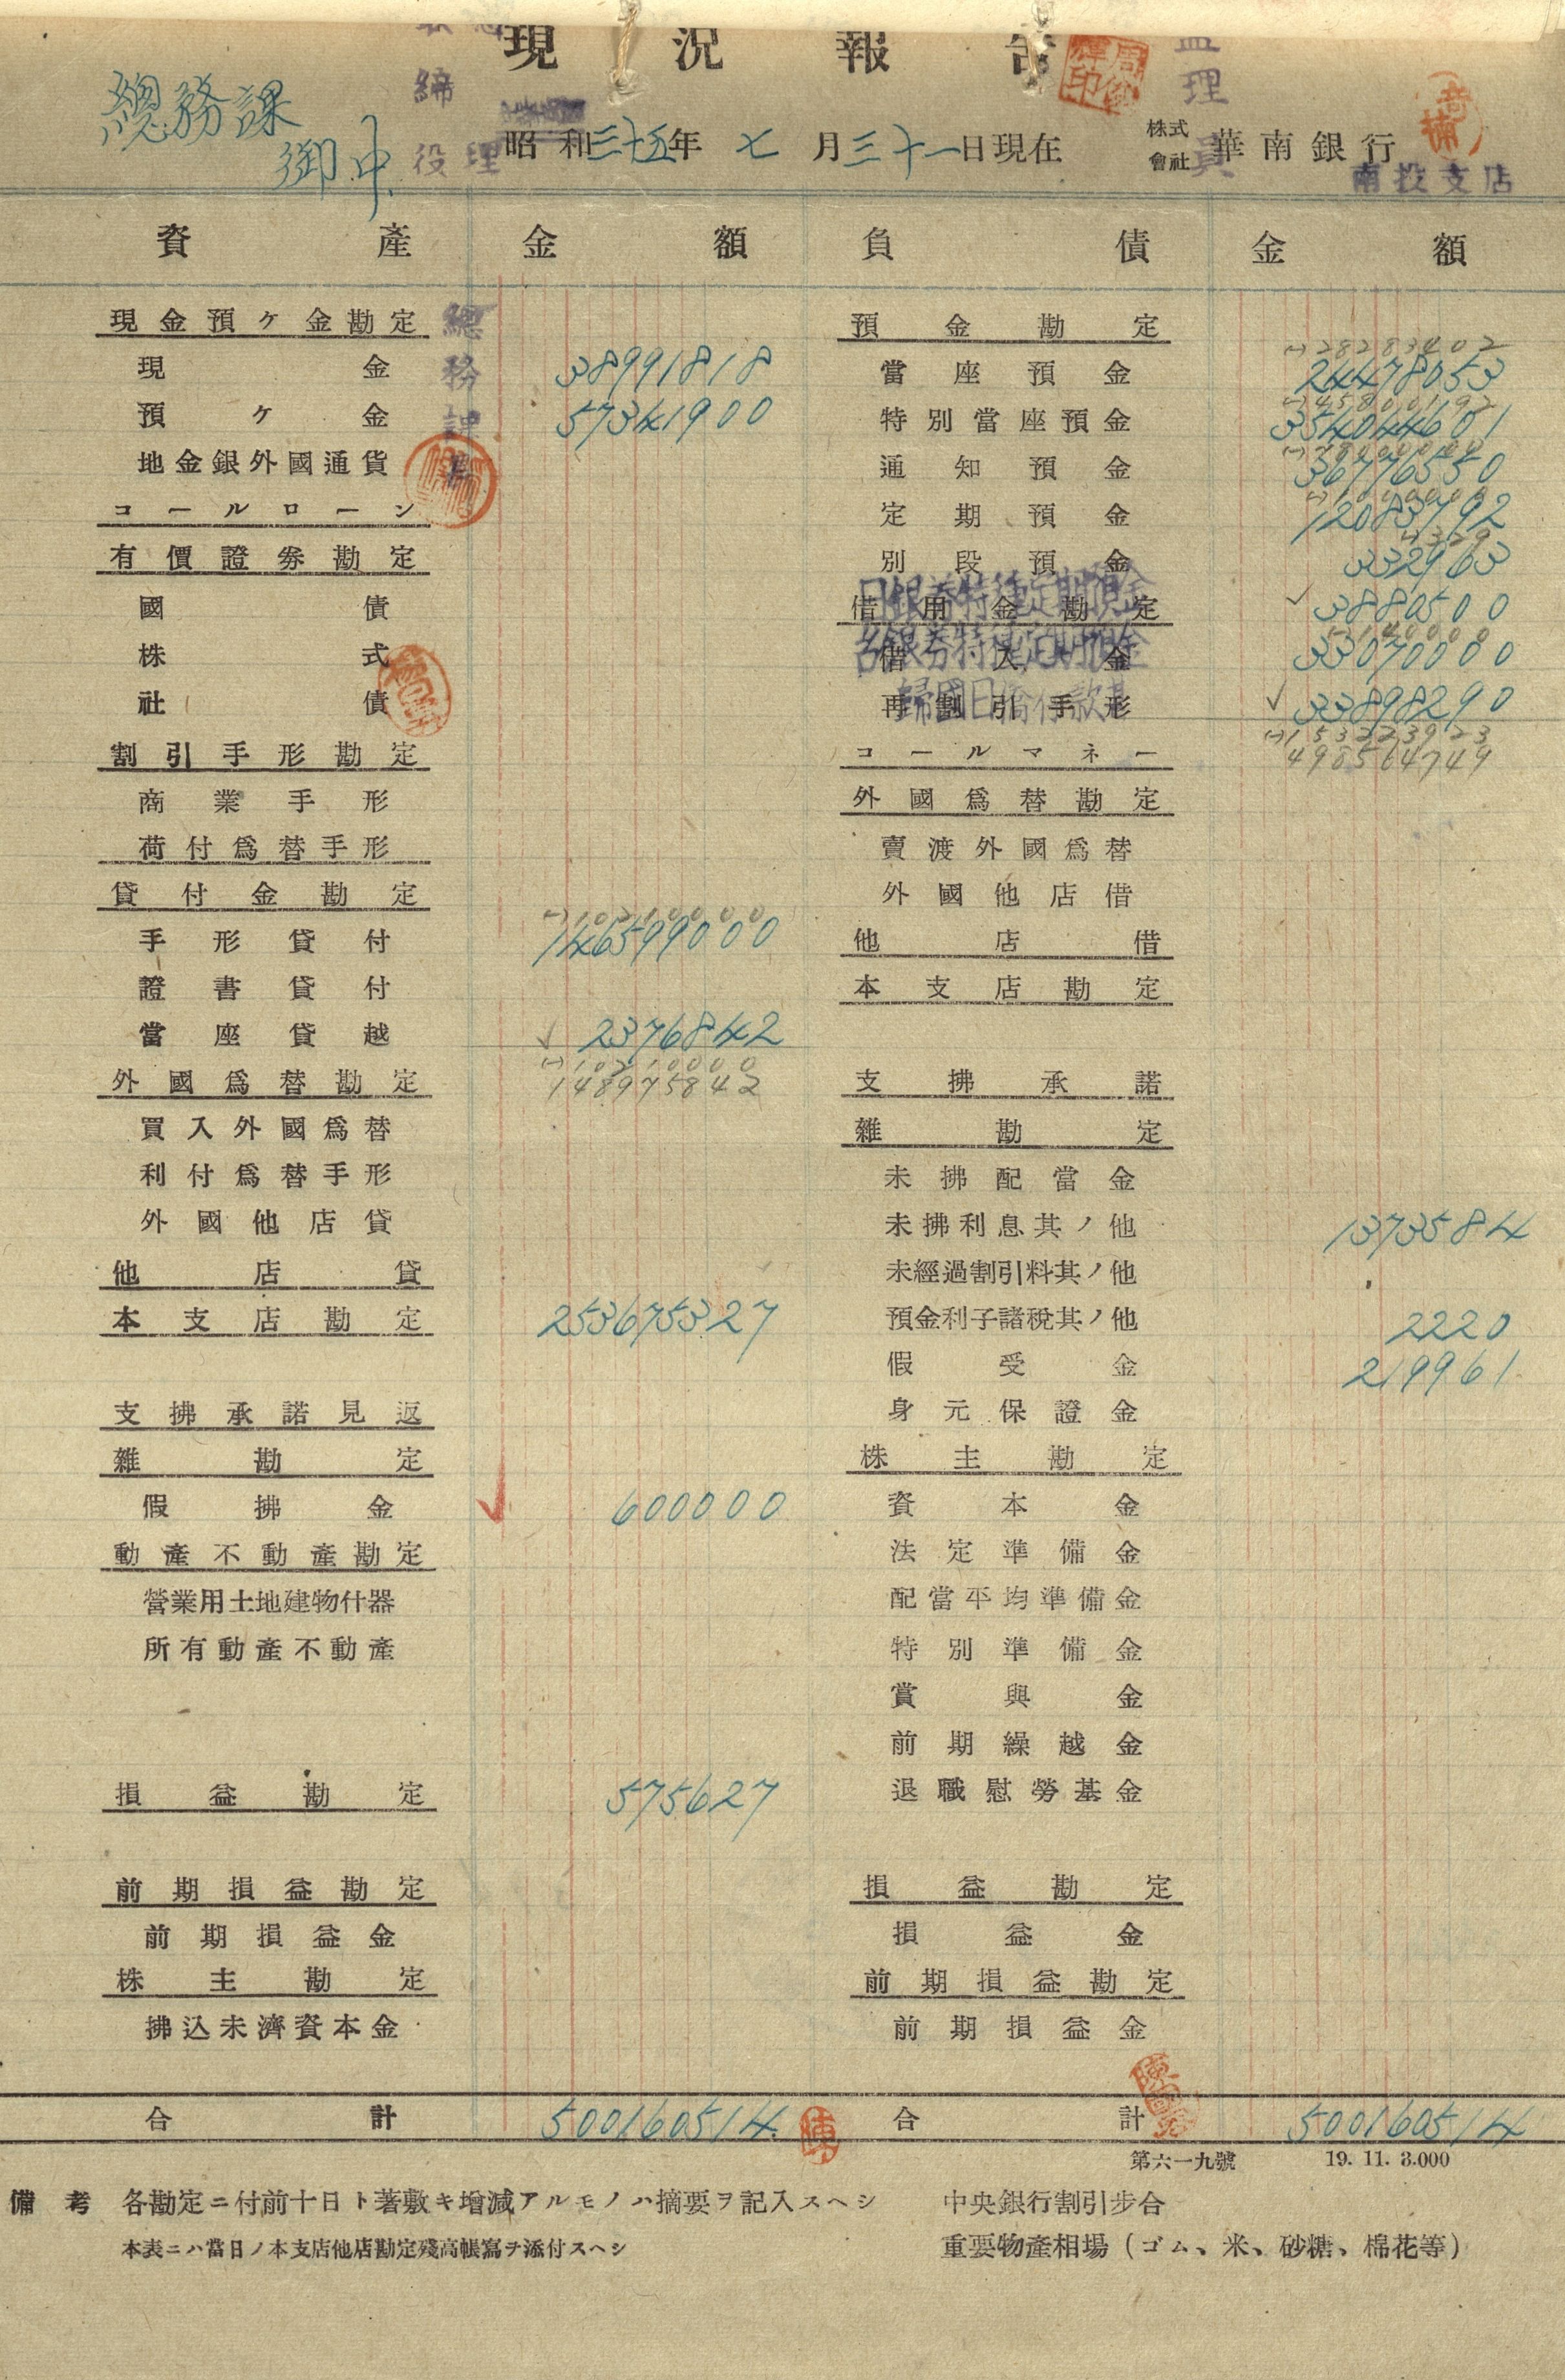 現況報告
總務課
御中
昭和三十五年七月三十一日現在
株式會社華南銀行
南投支店
資產 金額 負債 金額
現金預ヶ金勘定
現金 38991818
預ヶ金 57341900
地金銀外國通貨
コールローン
有價證劵勘定
國債
株式
社債
割引手形勘定
商業手形
荷付爲替手形
貸付金勘定
(-)102100000
手形貸付 146599000
證書貸付
當座貸越 ✓ 2376842
外國爲替勘定
(-)10210000
148975842
買入外國爲替
利付爲替手形
外國他店貸
他店貸
本支店勘定 253675327
支拂承諾見返
雜勘定
假拂金 ✓ 600000
動產不動產勘定
營業用土地建物什器
所有動產不動產
損益勘定 575627
前期損益勘定
前期損益金
株主勘定
拂込未濟資本金
合計 500160514
總務課
預金勘定
(-)28283402
當座預金 24478053
特別當座預金 354044601
通知預金 36776550
定期預金 12083792
(-)329
別段預金 332963
借用金勘定 ✓ 3880500
日銀券特種定期預金
借入金 33070000
台銀券特種定期預金
再割引手形 ✓ 33898290
歸國日僑存款
(-)153223923
498564749
コールマネー
外國爲替勘定
賣渡外國爲替
外國他店借
他店借
本支店勘定
支拂承諾
雜勘定
未拂配當金
未拂利息其ノ他 1373584
未經過割引料其ノ他
預金利子諸稅其ノ他 2220
假受金 219961
身元保證金
株主勘定
資本金
法定準備金
配當平均準備金
特別準備金
賞與金
前期繰越金
退職慰勞基金
損益勘定
損益金
前期損益勘定
前期損益金
合計 500160514
陳
第六一九號 19. 11. 3.000
備考 各勘定ニ付前十日ト著敷キ增減アルモノハ摘要ヲ記入スヘシ
本表ニハ當日ノ本支店他店勘定殘高帳寫ヲ添付スヘシ
中央銀行割引步合
重要物產相場(ゴム、米、砂糖、棉花等)